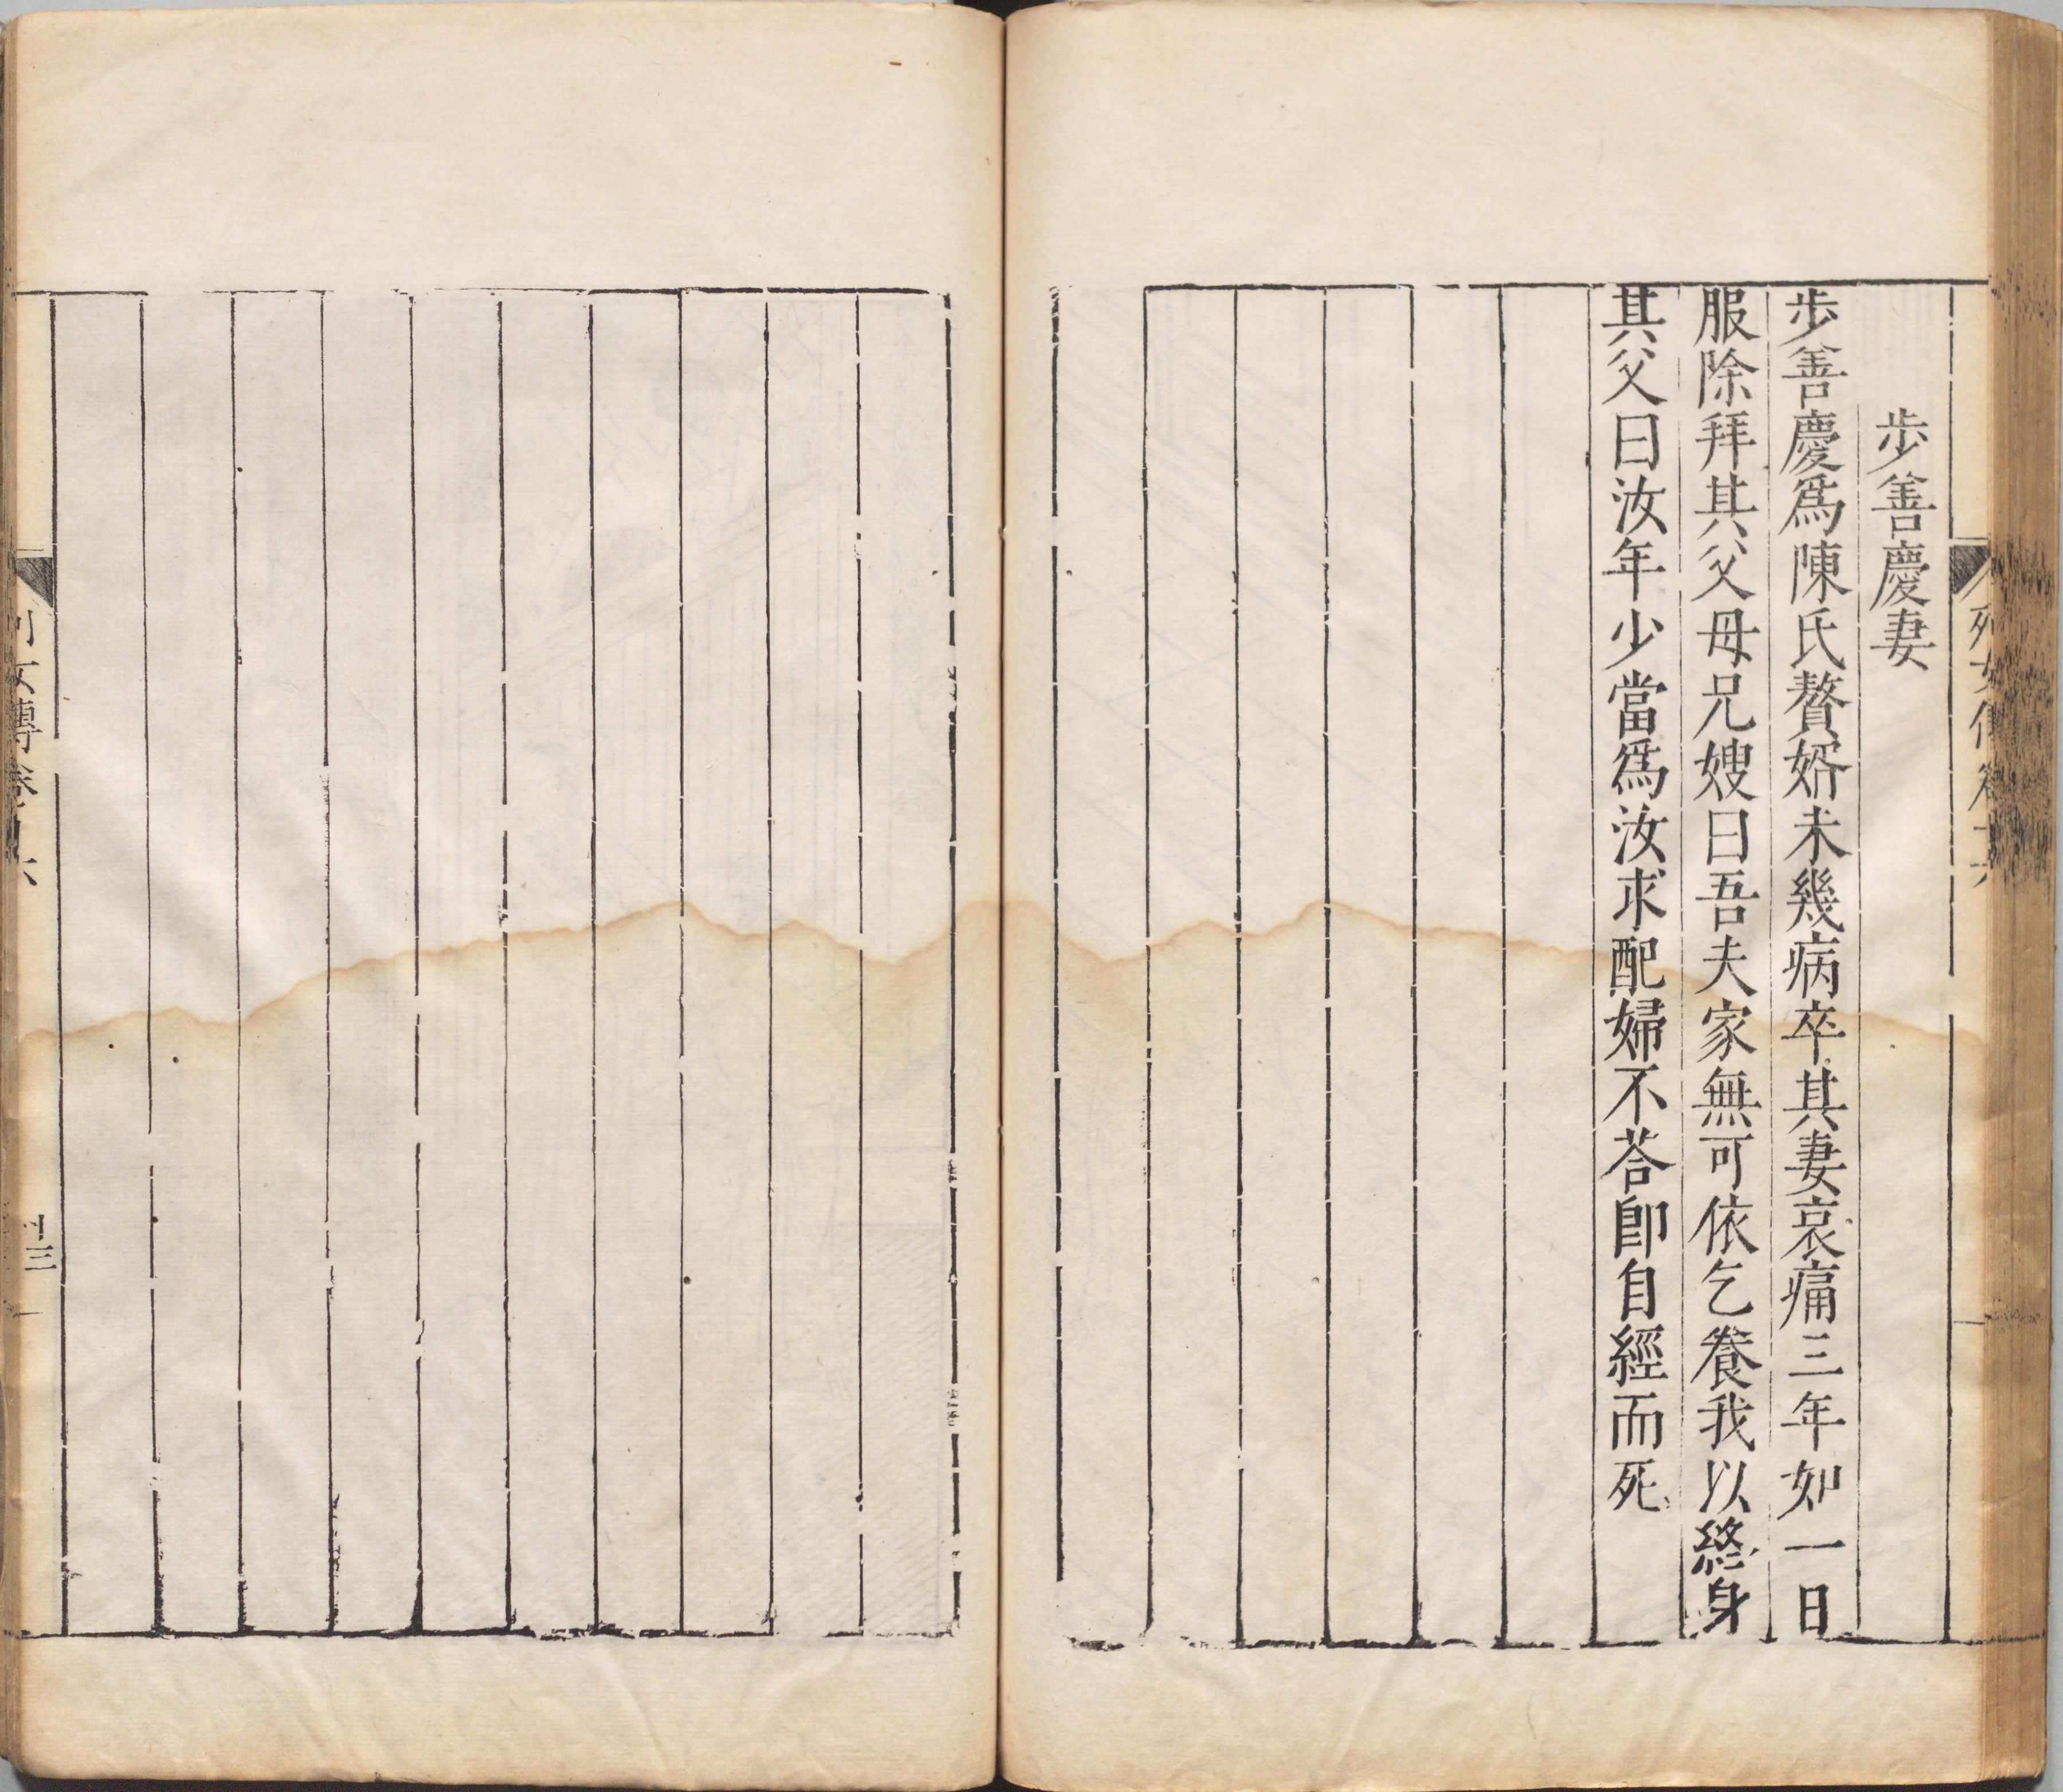 步善慶妻
步善慶爲陳氏贅婿未幾病卒其妻哀痛三年如一日
服除拜其父母兄嫂曰吾夫家無可依乞養我以終身
其父曰汝年少當爲汝求配婦不荅卽自經而死
列女傳卷十六